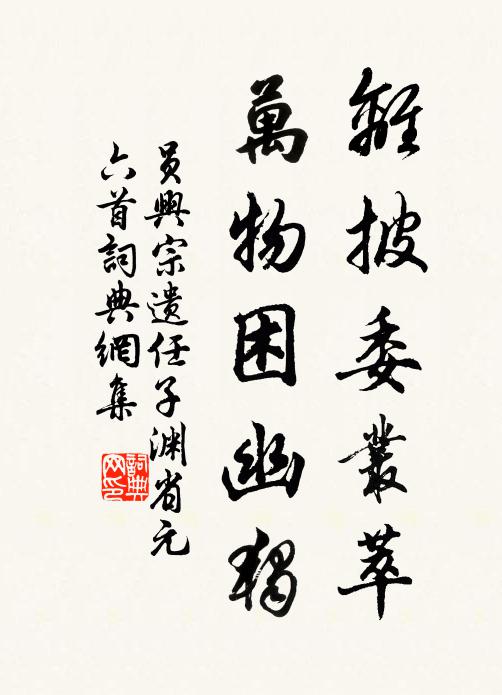 離披委叢萃
萬物困幽獨
員興宗遺任子淵省元
六首詞典網集
詞典網印